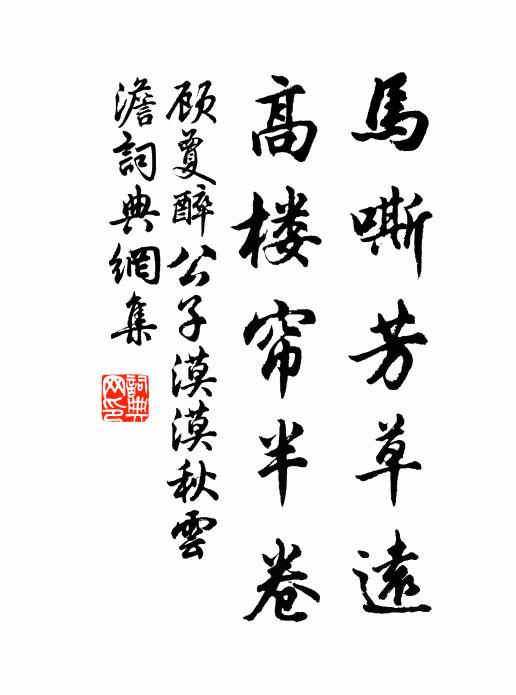 馬嘶芳草遠
高楼帘半卷
顾夐醉公子漠漠秋雲
澹詞典網集
詞典
网印